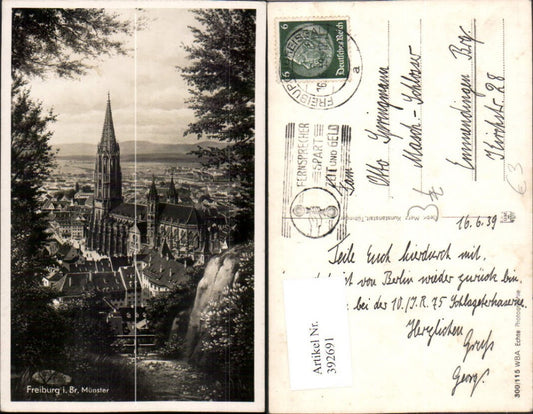 Freiburg i. Br., Münster
6 6
Deutsches Reich
FREIBURG
16.
a
FERNSPRECHER
SPART
ZEIT UND GELD
Herrn
Otto Springmann
Masch.-Schlosser
Emmendingen Brg.
Kirchstr. 28
€3
16.6.39
Teile Euch hierdurch mit,
ich von Berlin wieder zurück bin,
bei der 10./I.R. 75 Schlageterkaserne.
Herzlichen
Gruß
Georg.
Artikel Nr.
392691
300/115 WBA. Echte Photographie